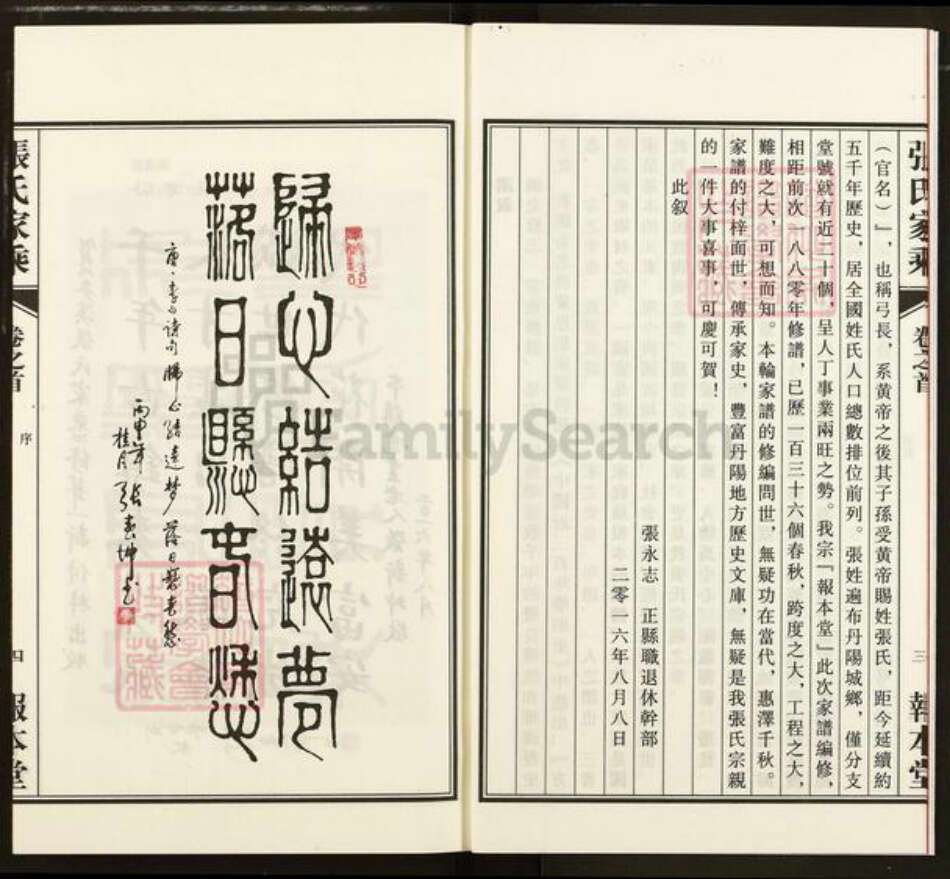 張氏家乘
卷之首
報本堂
（官名）』，也稱弓長，系黄帝之後其子孫受黄帝賜姓張氏，距今延續約
五千年歷史，居全國姓氏人口總數排位前列。張姓遍布丹陽城鄉，僅分支
堂號就有近二十個，呈人丁事業兩旺之勢。我宗「報本堂」此次家譜編修，
相距前次一八八零年修譜，已歷一百三十六個春秋，跨度之大，工程之大，
難度之大，可想而知。本輪家譜的修編問世，無疑功在當代，惠澤千秋。
家譜的付梓面世，傳承家史，豐富丹陽地方歷史文庫，無疑是我張氏宗親
的一件大事喜事，可慶可賀！
此叙
張永志　正縣職退休幹部
二零一六年八月八日
歸心結遠夢
落日懸春愁
唐·李白詩句歸心結遠夢落日懸春愁
丙申年
桂月張書坤書
張氏家乘
卷之首
序
四
報本堂
FamilySearch